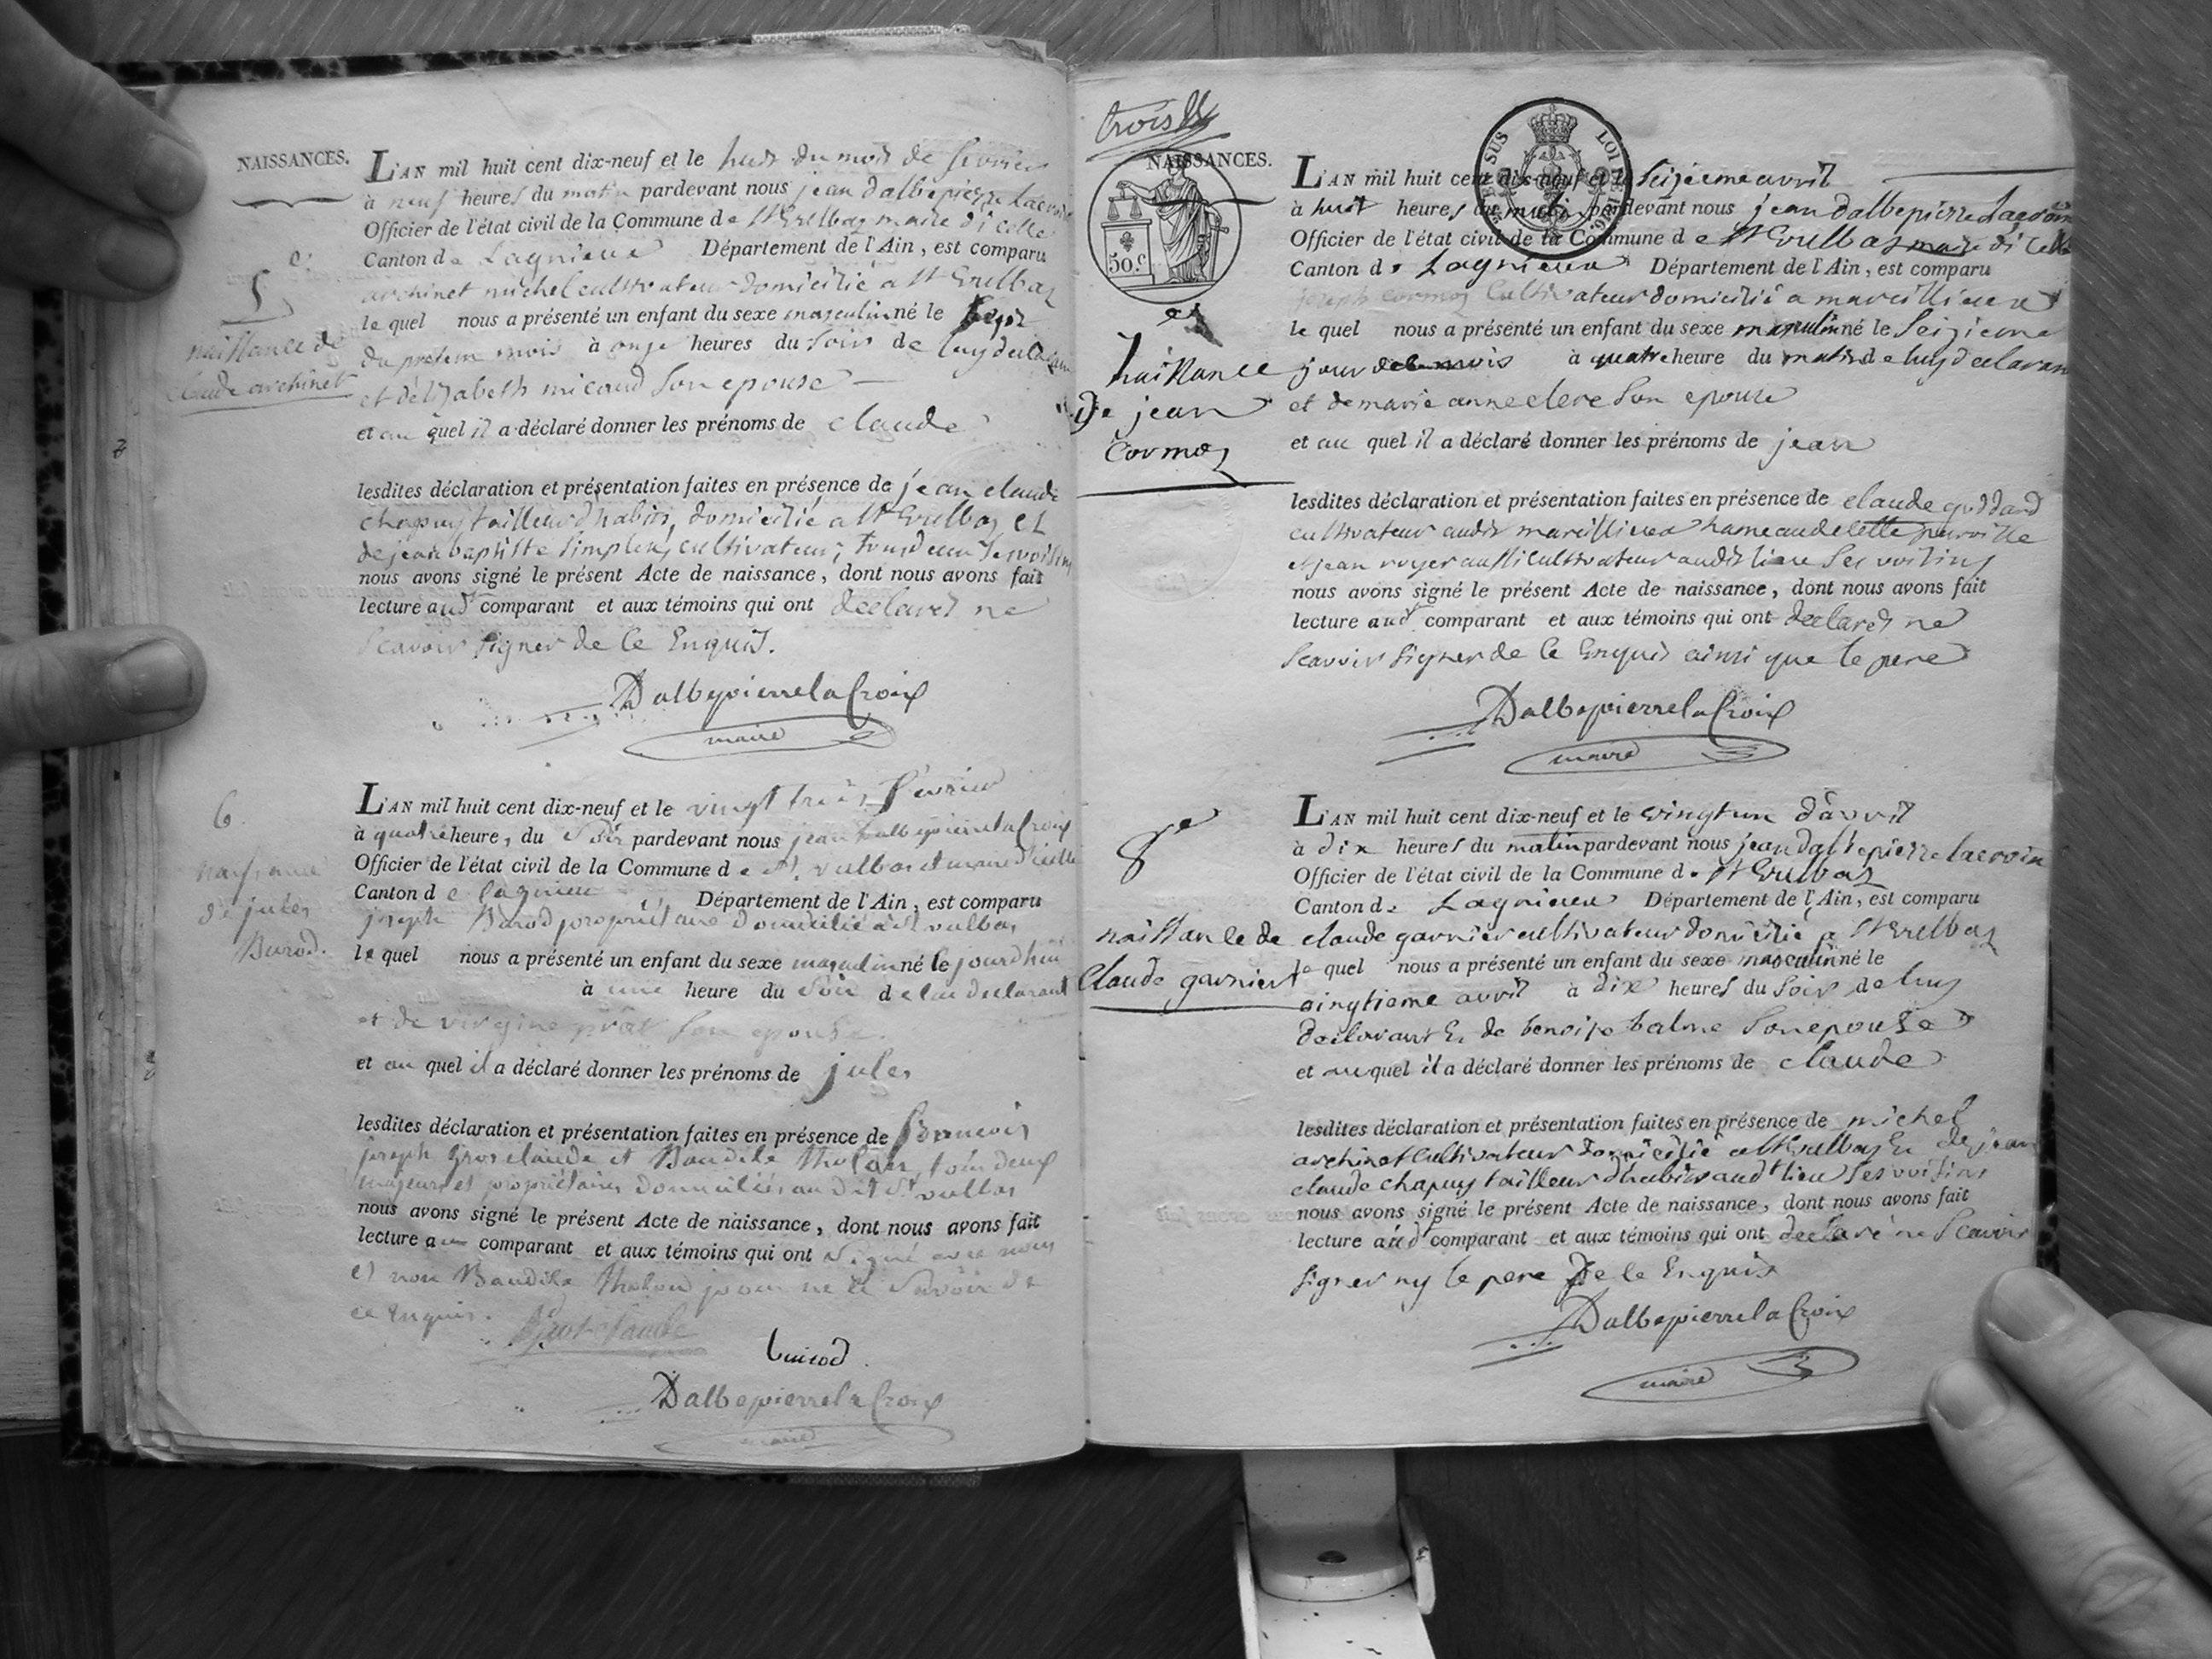 NAISSANCES.
L'AN mil huit cent dix-neuf et le huit du mois de fevrier
à neuf heures du matin pardevant nous jean dalbepierre lacroix
Officier de l'état civil de la Commune de St Vulbaz maire dicelle
Canton de Lagnieux Département de l'Ain, est comparu
archinet michel cultivateur domicilié a St Vulbaz
le quel nous a présenté un enfant du sexe masculin né le
du present mois à onze heures du soir de luy declarant
et délizabeth micaud son epouse
et au quel il a déclaré donner les prénoms de claude
lesdites déclaration et présentation faites en présence de jean claude
chapuy tailleur d'habits, domicilié a St Vulbaz et
de jean baptiste simplex, cultivateur, tous deux ses voisins
nous avons signé le présent Acte de naissance, dont nous avons fait
lecture aud comparant et aux témoins qui ont declarés ne
scavoir signer de ce Enquis.
DalbepierrelaCroix
maire
5e
naissance de
claude archinet
L'AN mil huit cent dix-neuf et le vingt trois fevrier
à quatre heure, du soir pardevant nous jean dalbepierrelaCroix
Officier de l'état civil de la Commune de St. vulbas et maire d'icelle
Canton de lagnieu Département de l'Ain, est comparu
joseph Barod propriétaire domicilié à St vulbas
le quel nous a présenté un enfant du sexe masculin né le jourd'hui
à une heure du soir de lui declarant
et de virginie prât son epouse.
et au quel il a déclaré donner les prénoms de jules
lesdites déclaration et présentation faites en présence de francois
joseph Grosclaude et Baudile tholon, tous deux
majeurs et propriétaires domiciliés au dit St vulbas
nous avons signé le présent Acte de naissance, dont nous avons fait
lecture au comparant et aux témoins qui ont signé avec nous
et non Baudile tholon pour ne le savoir de
ce enquis.
DalbepierrelaCroix
maire
6
naissance
de jules
Burod.
trois
NAISSANCES.
50.c
SUS
LOI
1816.
L'AN mil huit cent dix-neuf et le seizieme avril
à huit heures du matin pardevant nous jean dalbepierre lacroix
Officier de l'état civil de la Commune de St Vulbas maire dicelle
Canton de Lagnieux Département de l'Ain, est comparu
joseph cormoz cultivateur domicilié a marcillieux
le quel nous a présenté un enfant du sexe masculin né le seizieme
jour de ce mois à quatre heure du matin de luy declarant
et de marie anne clere son epouse
et au quel il a déclaré donner les prénoms de jean
lesdites déclaration et présentation faites en présence de claude
cultivateur audit marcillieux hameau de cette paroisse
et jean royer aussi cultivateur audit lieu ses voisins
nous avons signé le présent Acte de naissance, dont nous avons fait
lecture aud comparant et aux témoins qui ont declarés ne
scavoir signer de ce Enquis ainsi que le pere
DalbepierrelaCroix
maire
naissance
de jean
Cormoz
L'AN mil huit cent dix-neuf et le vingtun d'avril
à dix heures du matin pardevant nous jean dalbepierre lacroix
Officier de l'état civil de la Commune de St Vulbaz
Canton de Lagnieux Département de l'Ain, est comparu
claude garnier cultivateur domicilié a St Vulbaz
le quel nous a présenté un enfant du sexe masculin né le
vingtieme avril à dix heures du soir de luy
declarant & de benoite balme son epouse
et auquel il a déclaré donner les prénoms de claude
lesdites déclaration et présentation faites en présence de michel
archinet cultivateur domicilié a St Vulbaz & de jean
claude chapuy tailleur d'habits audt lieu ses voisins
nous avons signé le présent Acte de naissance, dont nous avons fait
lecture audt comparant et aux témoins qui ont declaré ne scavoir
signer ny le pere De ce Enquis
DalbepierrelaCroix
maire
8e
naissance de
Claude garniert